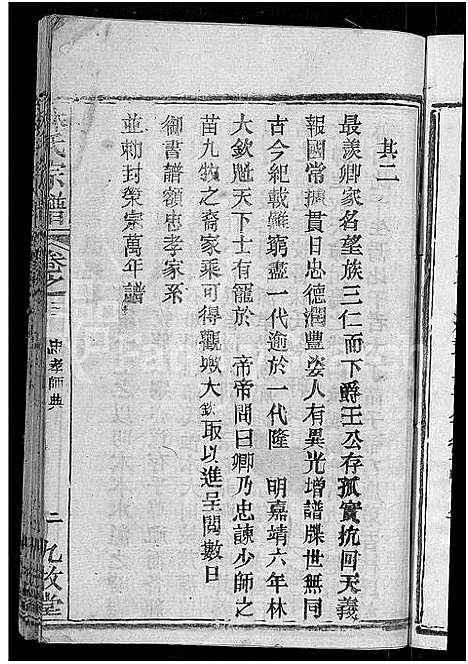 其二
最羨卿家名望族三仁而下爵王公存孤實抗回天義
報國常擄貫日忠德潤豐姿人有異光增譜牒世無同
古今紀載難窮盡一代逾於一代隆　明嘉靖六年林
大欽魁天下士有寵於　帝帝間曰卿乃忠諫少師之
苗九牧之裔家乘可得觀歟大欽取以進呈閱數日
御書譜額忠孝家系
並勅封榮宗萬年譜
氏宗譜
卷之
忠孝師典
二
九牧堂